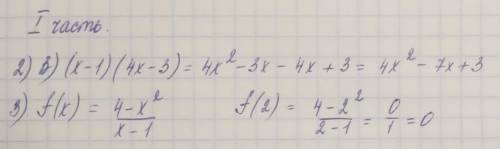 I часть.
2) в) (x-1)(4x-3) = 4x² - 3x - 4x + 3 = 4x² - 7x + 3
3) f(x) = (4-x²)/(x-1) f(2) = (4-2²)/(2-1) = 0/1 = 0